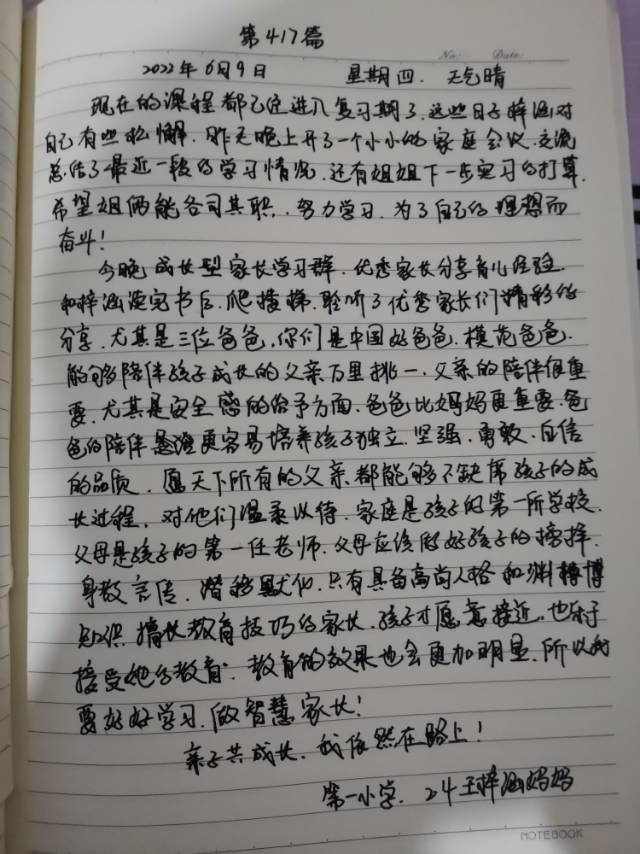 第417篇
No: Date:
2022年6月9日 星期四. 天气晴
现在的课程都已经进入复习期了,这些日子梓涵对
自己有些松懈.昨天晚上开了一个小小的家庭会议.交流
总结了最近一段的学习情况,还有姐姐下一步实习的打算.
希望姐俩能各司其职.努力学习.为了自己的理想而
奋斗!
今晚成长型家长学习群.优秀家长分享育儿经验.
和梓涵读完书后.爬楼梯.聆听了优秀家长们精彩的
分享.尤其是三位爸爸,你们是中国好爸爸.模范爸爸.
能够陪伴孩子成长的父亲万里挑一.父亲的陪伴很重
要.尤其是安全感的给予方面.爸爸比妈妈更重要.爸
爸的陪伴 更容易培养孩子独立.坚强.勇敢.自信
的品质.愿天下所有的父亲都能够不缺席孩子的成
长过程.对他们温柔以待.家庭是孩子的第一所学校.
父母是孩子的第一任老师.父母应该做好孩子的榜样.
身教言传.潜移默化.只有具备高尚人格和渊博
知识.擅长教育技巧的家长.孩子才愿意接近.也乐于
接受她的教育.教育的效果也会更加明显.所以我
要好好学习.做智慧家长!
亲子共成长.我依然在路上!
第一小学.24王梓涵妈妈
NOTEBOOK